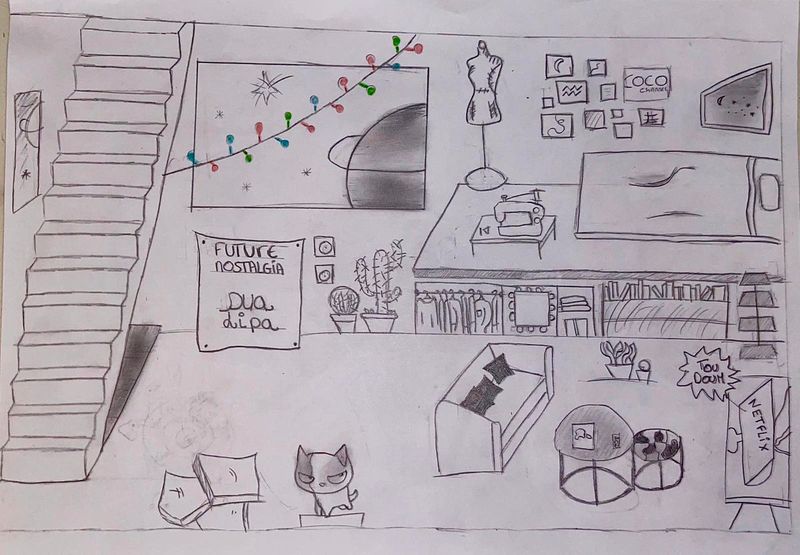 COCO
CHANEL
FUTURE
NOSTALGIA
Dua
Lipa
TOU
DOUM
NETFLIX